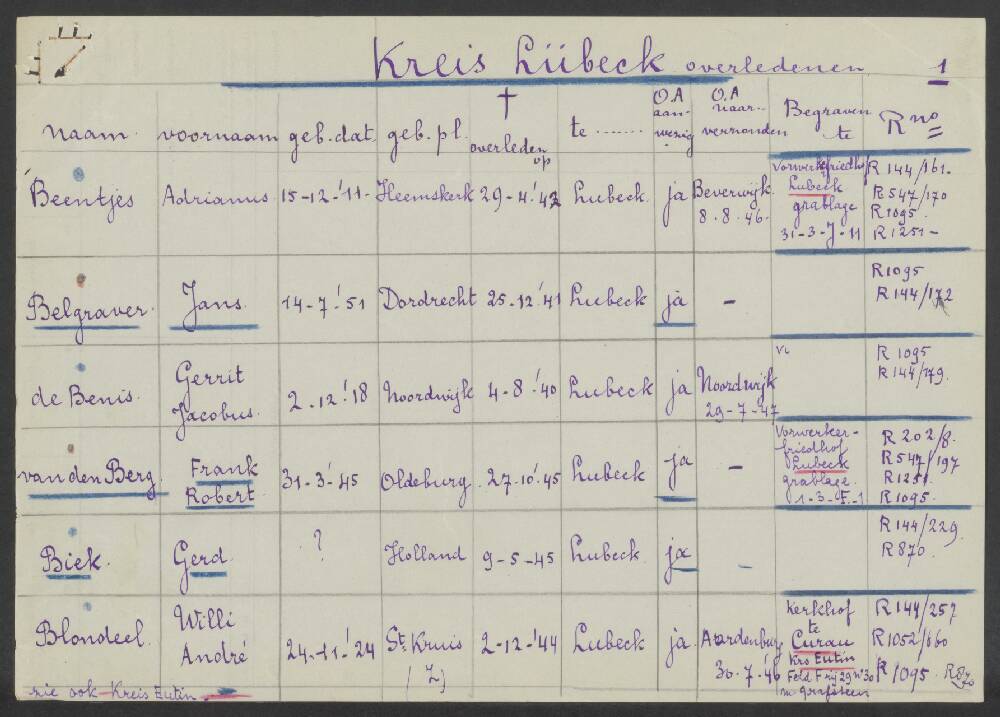 Kreis Lübeck overledenen 1
naam voornaam geb. dat. geb. pl. † overleden op te ........ O.A aan-wezig O.A naar-verzonden Begraven te R no
Beentjes Adrianus 15-12-'11 Heemskerk 29-4-'42 Lubeck ja Beverwijk 8.8.46. Vorwerkfriedhof Lubeck grablage 31-3-J-11 R 144/161. R 547/170 R 1095. R 1251-
Belgraver. Jans. 14-7-'51 Dordrecht 25-12-'41 Lubeck ja - R 1095 R 144/172
de Benis. Gerrit Jacobus. 2-12-'18 Noordwijk 4-8-'40 Lubeck ja Noordwijk 29-7-'47 R 1095 R 144/179.
van den Berg Frank Robert 31-3-'45 Oldeburg 27-10-'45 Lubeck ja - Vorwerker-friedhof Lubeck grablage. 1-3-F-1 R 202/8. R 547/197 R 1251. R 1095.
Biek. Gerd. ? Holland 9-5-45 Lubeck ja - R 144/229. R 870.
Blondeel. Willi André 24-11-'24 St. Kruis (Z) 2-12-'44 Lubeck ja. Aardenburg 30-7-'46 Kerkhof te Curau Krs Eutin Feld F rij 29 no 30 m. grafsteen R 144/257 R 1052/160 R 1095. R 870
zie ook Kreis Eutin